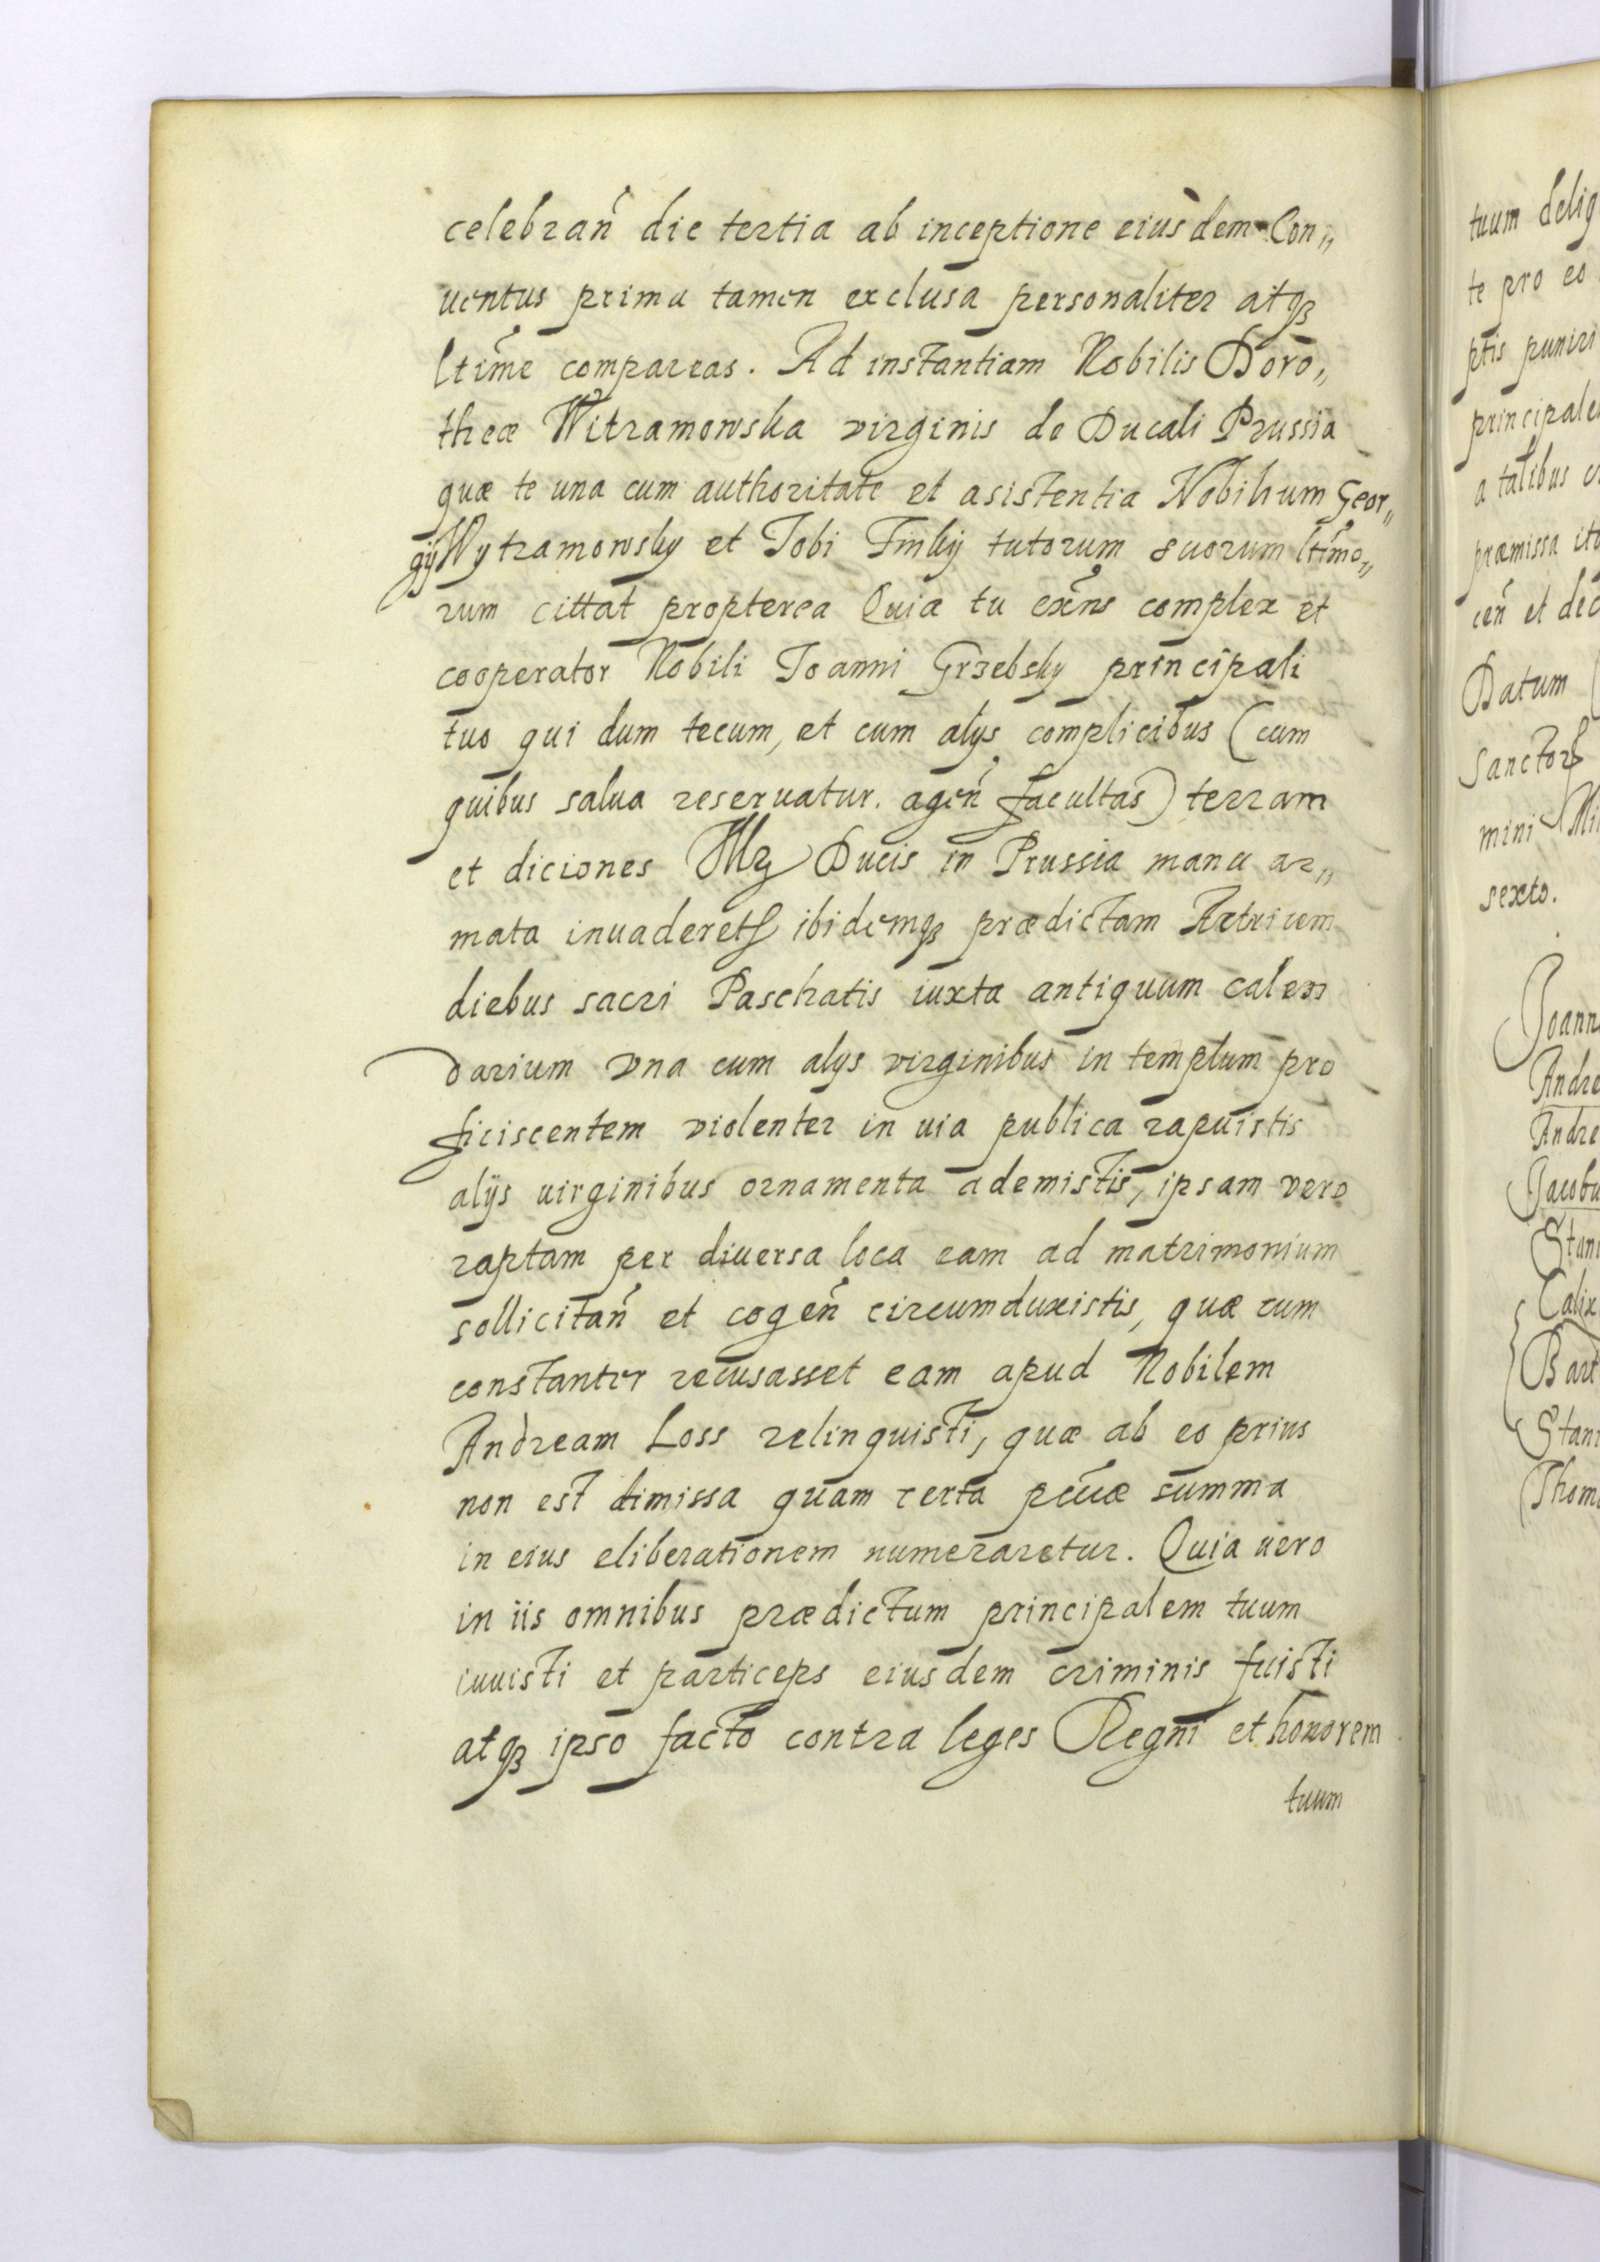 celebrañ die tertia ab inceptione eiusdem Con„
uentus prima tamen exclusa personaliter atqꝫ
ltime compareas. Ad instantiam Nobilis Doro„
theæ Witramowska virginis de Ducali Prussia
quæ te una cum authoritate et asistentia Nobilium Geor„
gÿ Wytramowsky et Tobi tutorum suorum ltimo„
rum cittat propterea Quia tu exñs complex et
cooperator Nobili Joanni Grzebsky principali
tuo qui dum tecum, et cum alys complicibus (cum
quibus salua reseruatur. ageñ facultas) terram
et diciones Ducis in Prussia manu ar„
mata inuaderet ibidemqꝫ prædictam Actricem
diebus sacri Paschatis iuxta antiquum calen
darium vna cum alys virginibus in templum pro
ficiscentem violenter in uia publica rapuistis
alÿs uirginibus ornamenta ademistis, ipsam vero
raptam per diuersa loca eam ad matrimonium
sollicitañ et cogeñ circumduxistis, quæ cum
constanter recusasset eam apud Nobilem
Andream Loss relinquisti, quæ ab eo prius
non est dimissa quam certa summa
in eius eliberationem numeraretur. Quia uero
in iis omnibus prædictum principalem tuum
iuuisti et particeps eiusdem criminis fuisti
atqꝫ ipso facto contra leges Regni et honorem
tuum
tuum
te pro eo
puniri
a talibus
præmissa
ceñ et
Datum
mini
sexto.